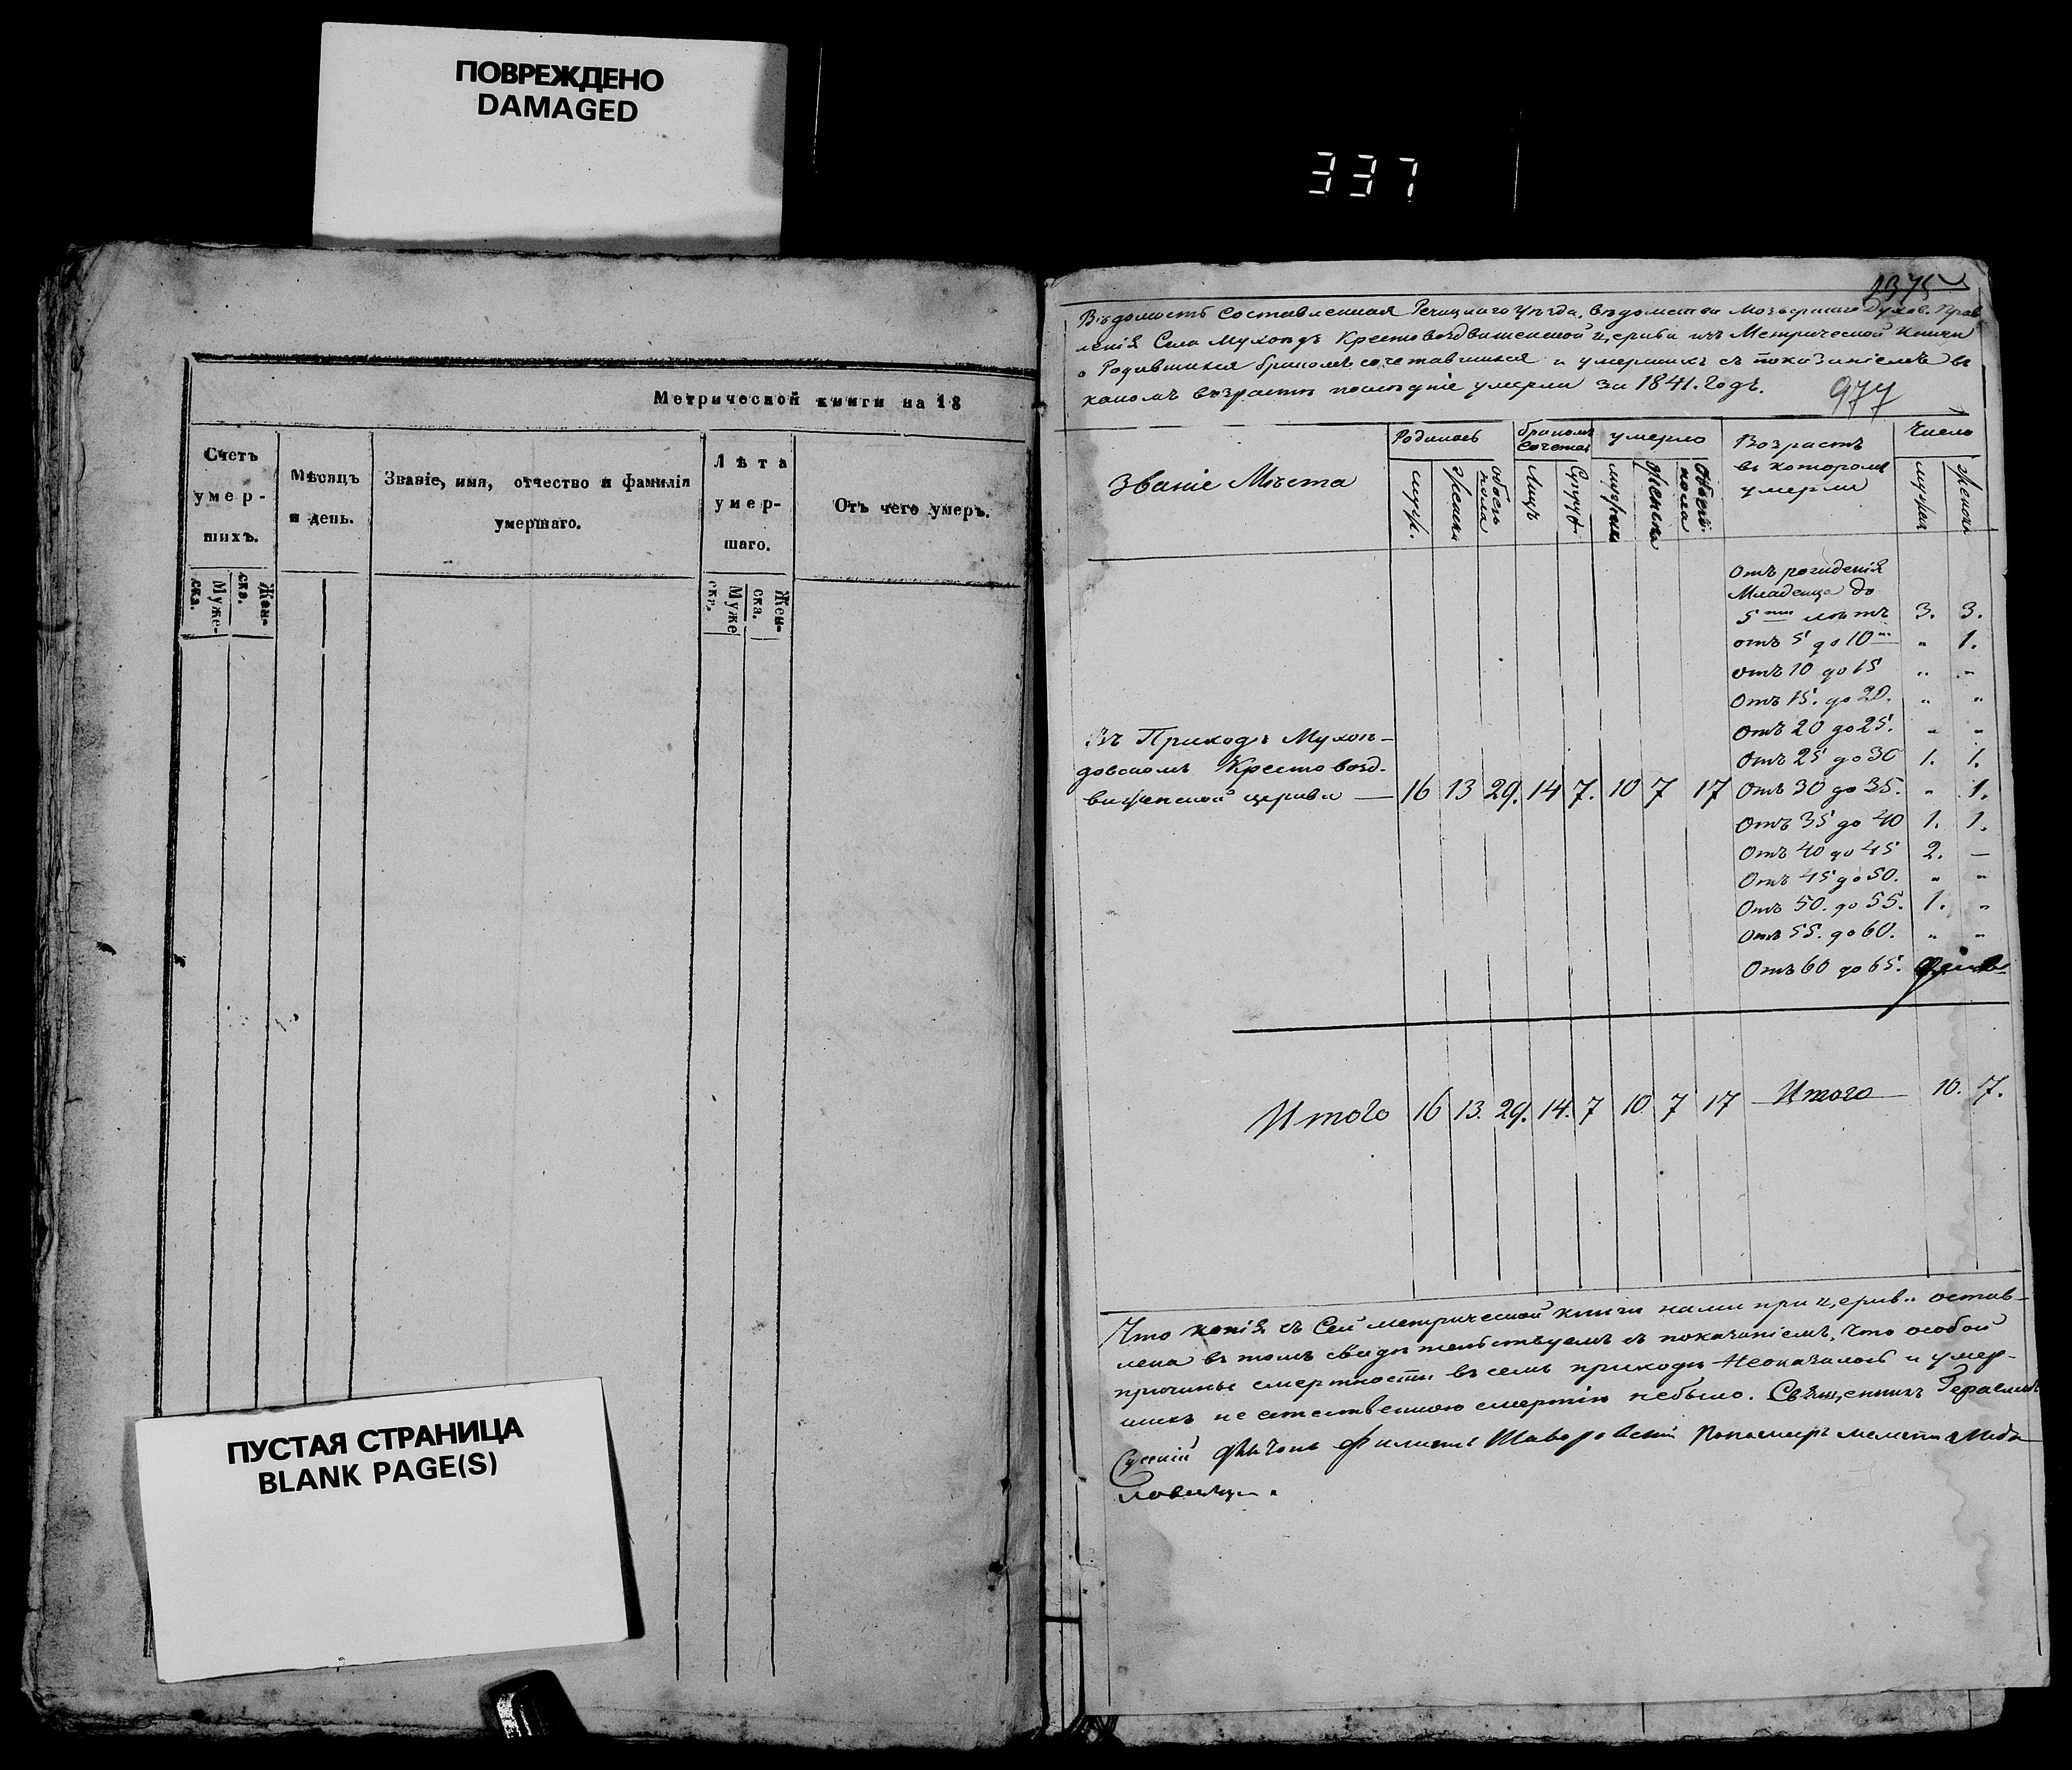 ПОВРЕЖДЕНО
DAMAGED
337
Метрической книги на 18
Счетъ умер-шихъ.
Мѣсяцъ и день.
Званіе, имя, отчество и фамилія умершаго.
Лѣта умер-шаго.
Отъ чего умеръ.
Муже-ска.
Жен-ска.
Муже ск.
Жен-ска.
ПУСТАЯ СТРАНИЦА
BLANK PAGE(S)
1375
Вѣдомость Составленная Речицкаго уѣзда, вѣдомства Мозырскаго Духов. Прав
ленія Села Мухоѣдъ Крестовоздвиженской церкви изъ Метрической Книги
о Родившихся бракомъ сочетавшихся и умершихъ съ показаніемъ въ
какомъ возрастѣ послѣдніе умерли за 1841. годъ.
977
Званіе Мѣста
Родилось
бракомъ Сочетал
умерло
Возрастъ въ которомъ умерли
Число
муж.
женск
обоег пола
Лицъ
Супруж.
мужеск
женска
Обоег. пола
мужеск
женск
Отъ рожденія
Младенца до
5ти лѣтъ 3. 3.
отъ 5 до 10ти " 1.
отъ 10 до 15 " "
Отъ 15. до 20. " "
Отъ 20 до 25. " "
Отъ 25 до 30 1. 1.
Въ Приходѣ Мухоѣ-
довскомъ Крестовозд-
виженской церкви — 16 13 29. 14 7. 10 7 17
Отъ 30 до 35. " 1.
Отъ 35 до 40 1. 1.
Отъ 40 до 45 2. —
Отъ 45 до 50. " "
Отъ 50. до 55. 1. "
Отъ 55. до 60. " "
Отъ 60 до 65.
Итого 16 13. 29. 14. 7 10 7 17 Итого 10. 7.
Что копія съ Сей метрической книги нами при церкви остав-
лена въ томъ свидѣтельствуемъ съ показаніемъ, что особой
причины смертности въ семъ приходѣ Неоказалось и умер-
шихъ не естественною смертію небыло. Священникъ
Филиппъ Пономарь